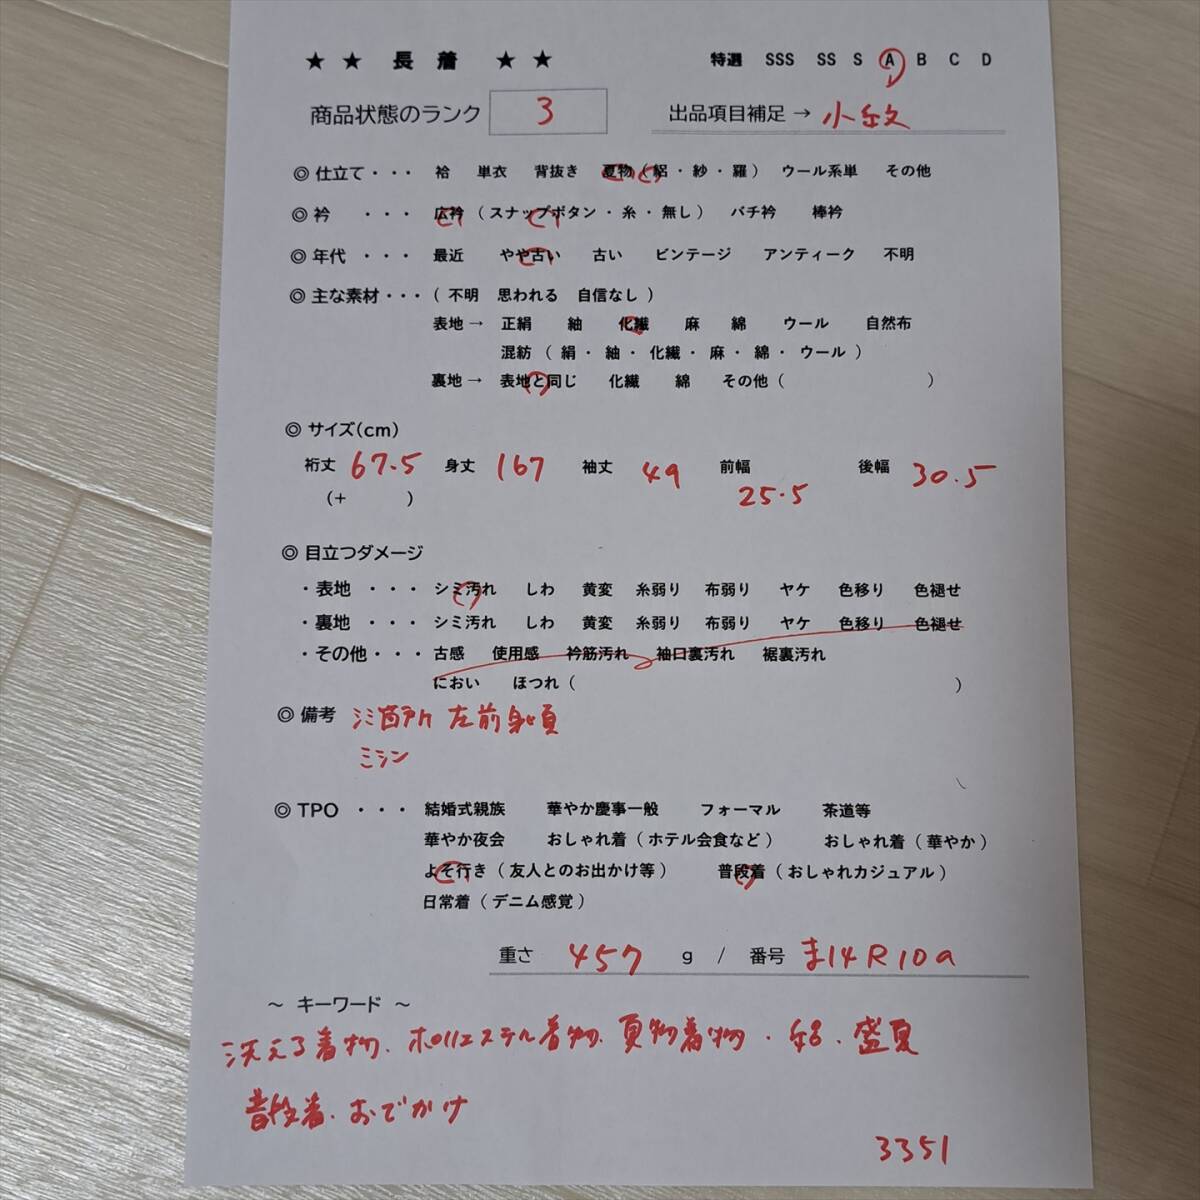 ★ ★ 長着 ★ ★ 特選 SSS SS S A B C D
商品状態のランク 3 出品項目補足 → 小紋
◎ 仕立て・・・ 袷 単衣 背抜き 夏物 ( 絽 ・ 紗 ・ 羅 ) ウール系単 その他
◎ 衿 ・・・ 広衿 ( スナップボタン ・ 糸 ・ 無し ) バチ衿 棒衿
◎ 年代 ・・・ 最近 やや古い 古い ビンテージ アンティーク 不明
◎ 主な素材・・・ ( 不明 思われる 自信なし )
表地 → 正絹 紬 化繊 麻 綿 ウール 自然布
混紡 ( 絹 ・ 紬 ・ 化繊 ・ 麻 ・ 綿 ・ ウール )
裏地 → 表地と同じ 化繊 綿 その他 ( )
◎ サイズ(cm)
裄丈 67.5 身丈 167 袖丈 49 前幅 25.5 後幅 30.5
(+ )
◎ 目立つダメージ
・表地 ・・・ シミ汚れ しわ 黄変 糸弱り 布弱り ヤケ 色移り 色褪せ
・裏地 ・・・ シミ汚れ しわ 黄変 糸弱り 布弱り ヤケ 色移り 色褪せ
・その他・・・ 古感 使用感 衿筋汚れ 袖口裏汚れ 裾裏汚れ
におい ほつれ ( )
◎ 備考 シミ箇所 左前身頃
ミシン
◎ TPO ・・・ 結婚式親族 華やか慶事一般 フォーマル 茶道等
華やか夜会 おしゃれ着 ( ホテル会食など ) おしゃれ着 ( 華やか )
よそ行き ( 友人とのお出かけ等 ) 普段着 ( おしゃれカジュアル )
日常着 ( デニム感覚 )
重さ 457 g / 番号 ま14R10a
～ キーワード ～
洗える着物、ポリエステル着物、夏物着物・絽・盛夏
普段着・おでかけ
3351